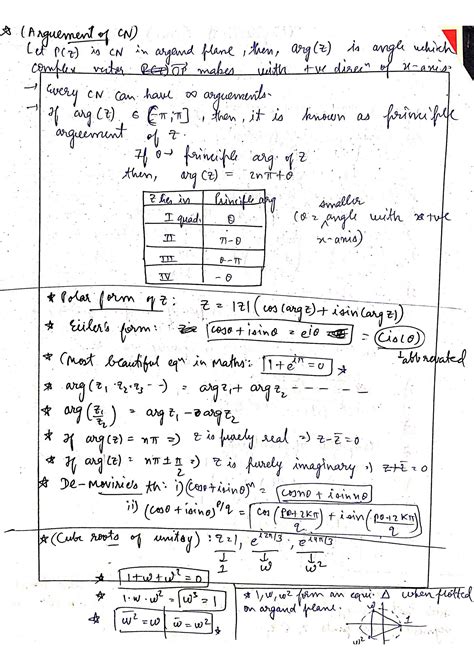 * (Arguement of CN)
Let P(z) is CN in argand plane, then, arg(z) is angle which
complex vector OP makes with +ve direcⁿ of x-axis.
→ Every CN can have ∞ arguements.
→ If arg(z) ∈ (-π, π], then, it is known as principle
arguement of z.
If θ → principle arg. of z
then, arg(z) = 2nπ+θ
z lies in | Principle arg
I quad. | θ
II | π-θ
III | θ-π
IV | -θ
smaller
(θ = angle with x+ve
x-axis)
* Polar form of z: z = |z|(cos(argz) + isin(argz))
* Euiler's form: cosθ+isinθ = e^{iθ} = Cis(θ)
↳ abbreviated
* (Most beautiful eqⁿ in maths: 1+e^{iπ}=0) *
* arg(z₁·z₂·z₃--) = argz₁ + argz₂ - - - - -
* arg(z₁/z₂) = argz₁ - argz₂
* If arg(z) = nπ ⇒ z is purely real ⇒ z-z̄=0
* If arg(z) = nπ ± π/2 ⇒ z is purely imaginary ⇒ z+z̄=0
* De-movirie's th: i) (cosθ+isinθ)ⁿ = cosnθ + isinnθ
ii) (cosθ+isinθ)^{p/q} = cos((pθ+2Kπ)/q) + isin((pθ+2Kπ)/q)
* (Cube roots of unitoy): z=1, e^{i2π/3}, e^{i4π/3}
1 ω ω²
* 1+ω+ω²=0
* 1·ω·ω² = ω³=1
* ω̄²=ω | ω̄=ω²
* 1,ω,ω² form an equi. Δ when plotted
on argand plane.
ω
1
ω²